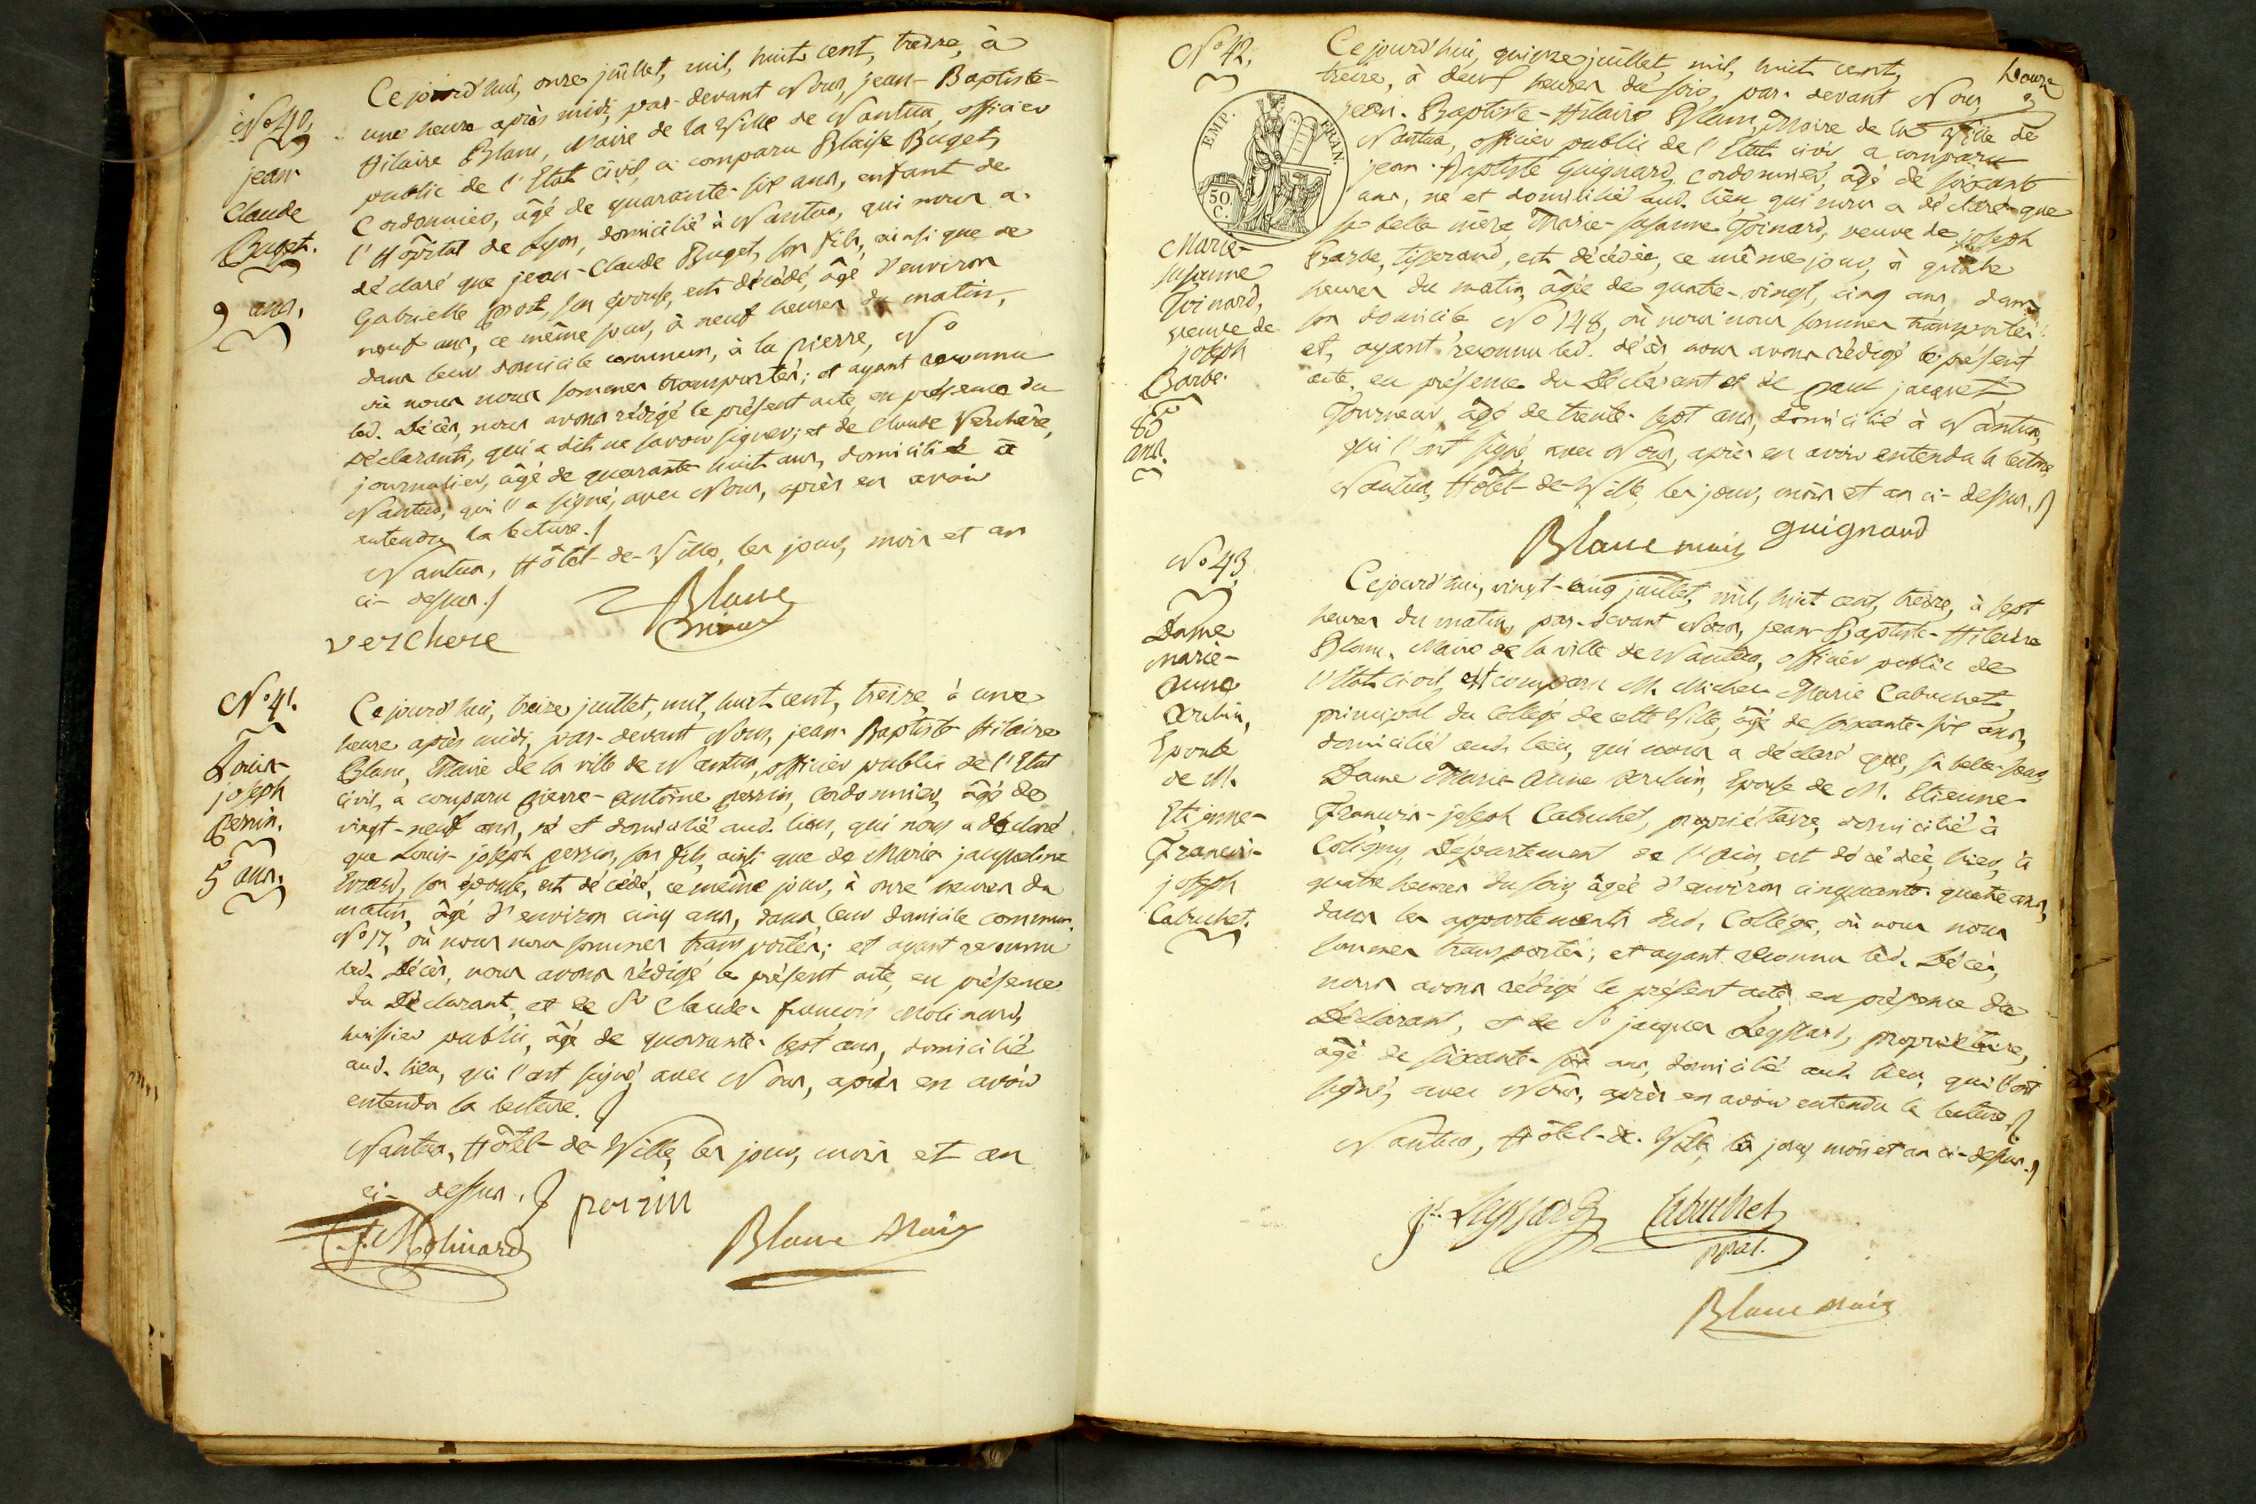 No 40.
jean
Claude
Buget.
9 ans.
Ce jourd'hui, onze juillet, mil, huit cent, treize, à
une heure après midi, par-devant Nous, jean-Baptiste-
Hilaire Blanc, Maire de la Ville de Nantua, officier
public de l'Etat civil, a comparu Blaise Buget,
Cordonnier, âgé de quarante-six ans, enfant de
l'Hôpital de Lyon, domicilié à Nantua, qui nous a
déclaré que jean-Claude Buget, son fils, ainsi que de
Gabrielle son épouse, est décédé, âgé d'environ
neuf ans, ce même jour, à neuf heures du matin,
dans leur domicile commun, à la pierre, No
où nous nous sommes transportés; et ayant reconnu
led. Décès, nous avons rédigé le présent acte, en présence du
Déclarant, qui a dit ne savoir signer; et de Claude Verchère,
journalier, âgé de quarante-huit ans, domicilié à
Nantua, qui l'a signé, avec Nous, après en avoir
entendu la lecture./
Nantua, Hôtel-de-Ville, les jour, mois et an
ci-dessus./
Blanc
maire
verchere
No 41.
Louis-
joseph
Perrin.
5 ans.
Ce jourd'hui, treize juillet, mil, huit cent, treize, à une
heure après midi, par-devant Nous, jean-Baptiste Hilaire
Blanc, Maire de la ville de Nantua, officier public de l'Etat
civil, a comparu pierre-antoine perrin, cordonnier, âgé de
vingt-neuf ans, né et domicilié aud. lieu, qui nous a déclaré
que Louis-joséph perrin, son fils, ainsi que de Marie jacqueline
son épouse, est décédé, ce même jour, à onze heures du
matin, âgé d'environ cinq ans, dans leur domicile commun,
No 17, où nous nous sommes transportés; et ayant reconnu
led. Décès, nous avons rédigé le présent acte, en présence
du Déclarant, et de Sr Claude-françois Molinard,
huissier public, âgé de quarante-sept ans, domicilié
aud. lieu, qui l'ont signé, avec Nous, après en avoir
entendu la lecture./
Nantua, Hôtel-de-Ville, les jour, mois et an
ci-dessus./
perrin
C. f. Molinard
Blanc Maire
Douze
No 42.
EMP. FRAN.
50 C.
Marie-
susanne
Goinard,
veuve de
joseph
Barbe.
85
ans.
Ce jourd'hui, quinze juillet, mil, huit cent,
treize, à deux heures du soir, par-devant Nous,
jean-Baptiste-Hilaire Blanc, Maire de la Ville de
Nantua, officier public de l'Etat civil, a comparu
jean-Baptiste Guignard, cordonnier, âgé de soixante
ans, né et domicilié aud. lieu, qui nous a déclaré que
sa belle mère, Marie-susanne Goinard, veuve de joseph
Barbe, tisserand, est décédée, ce même jour, à quatre
heures du matin, âgée de quatre-vingt, cinq ans, dans
son domicile, No 148, où nous nous sommes transportés;
et, ayant reconnu led. décès, nous avons rédigé le présent
acte, en présence du Déclarant et de paul jacquet
Tourneur, âgé de trente-sept ans, domicilié à Nantua,
qui l'ont signé, avec Nous, après en avoir entendu la lecture,
Nantua, Hôtel-de-Ville, les jour, mois et an ci-dessus./
Blanc maire guignard
No 43.
Dame
Marie-
anne
Epouse
de M.
Etienne-
François-
joseph
Cabuchet.
Ce jourd'hui, vingt-cinq juillet, mil, huit cent, treize, à sept
heures du matin, par-devant Nous, jean-Baptiste-Hilaire
Blanc, Maire de la ville de Nantua, officier public de
l'Etat civil, est comparu M. Michel Marie Cabuchet,
principal du Collége de cette Ville, âgé de soixante-six ans,
domicilié aud. lieu, qui nous a déclaré que, sa belle-sœur,
Dame Marie anne Epouse de M. Etienne-
François-joseph Cabuchet, propriétaire, domicilié à
Coligny, Département de l'Ain, est décédée, hier, à
quatre heures du soir, âgée d'environ cinquante-quatre ans,
dans les appartements dud. Collége, où nous nous
sommes transportés; et ayant reconnu led. Décès,
nous avons rédigé le présent acte, en présence du
Déclarant, et de Sr jacques Leyssard, propriétaire,
âgé de soixante-six ans, domicilié aud. lieu, qui l'ont
signé, avec Nous, après en avoir entendu la lecture./
Nantua, Hôtel-de-Ville, les jour, mois et an ci-dessus./
Leyssard Cabuchet
ppal.
Blanc maire